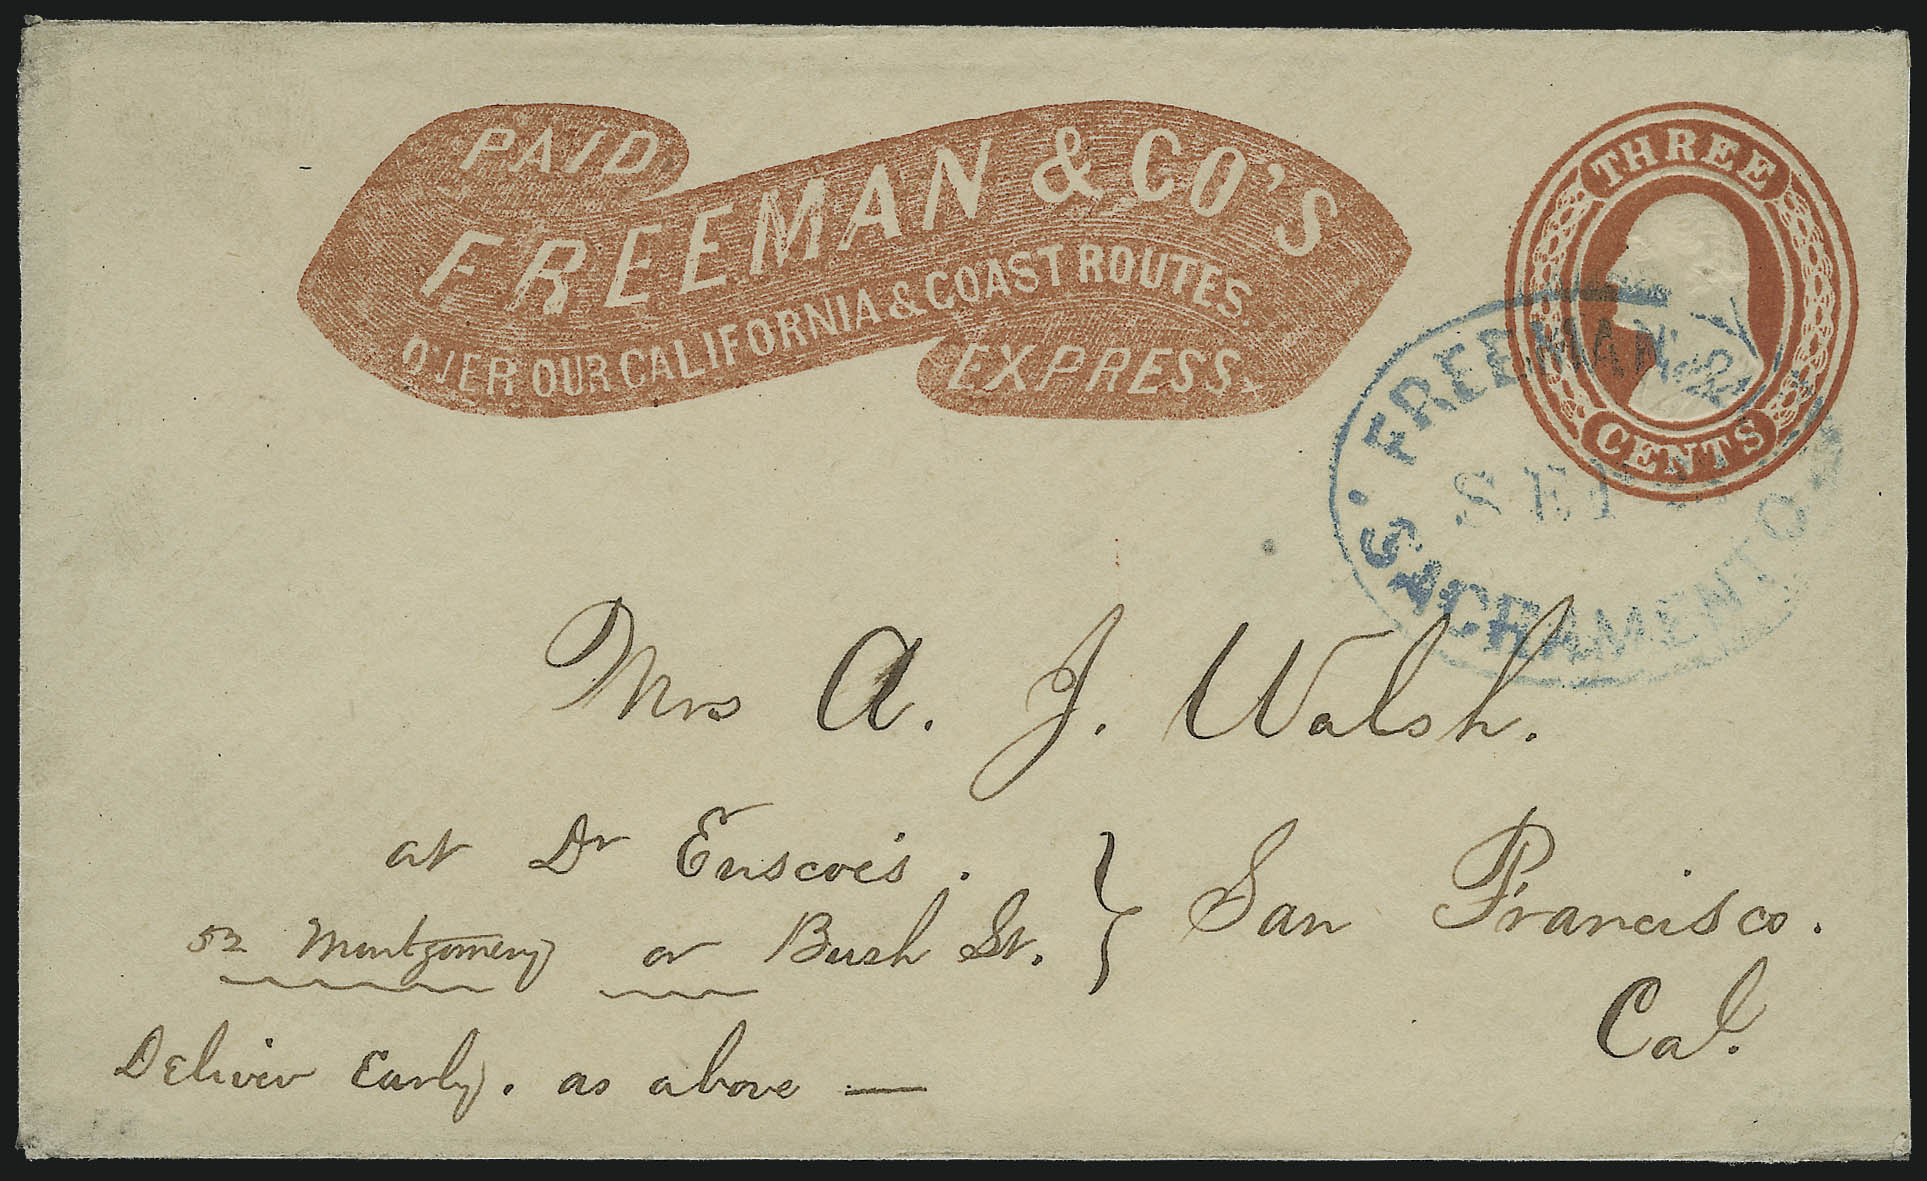 PAID
FREEMAN & CO'S
OVER OUR CALIFORNIA & COAST ROUTES
EXPRESS.
THREE
CENTS
FREEMAN & CO
SEP
SACRAMENTO
Mrs A. J. Walsh.
at Dr Enscoe's.
52 Montgomery or Bush St. } San Francisco.
Cal.
Deliver Early. as above —